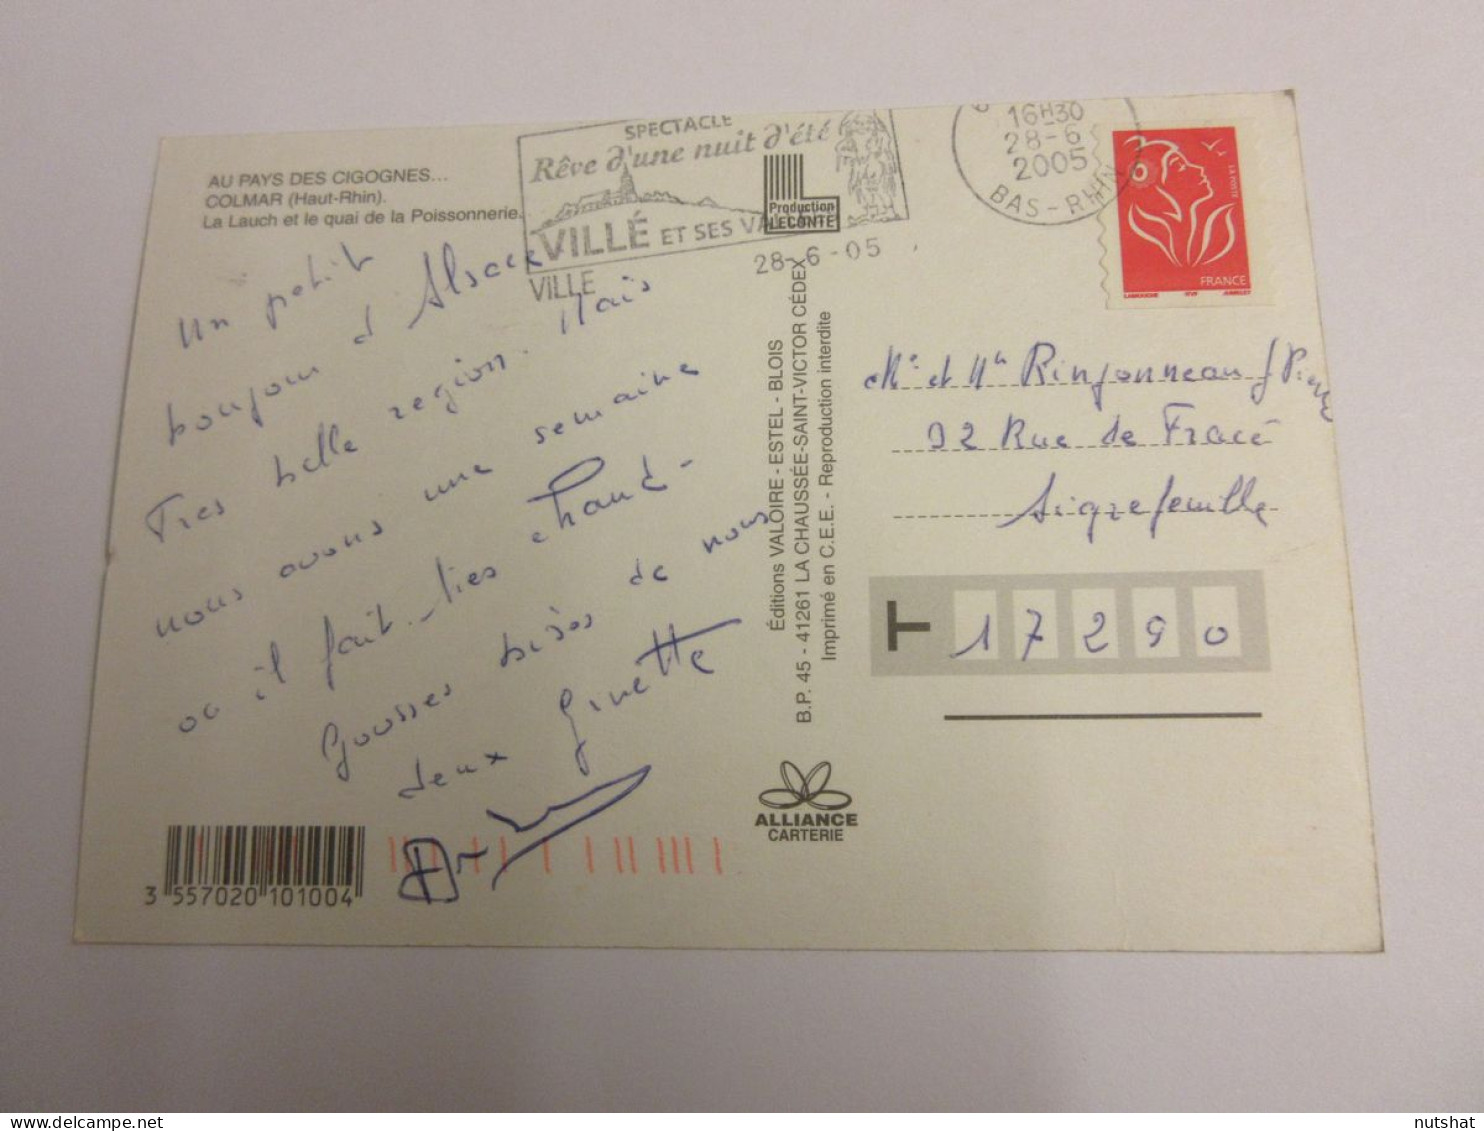 AU PAYS DES CIGOGNES...
COLMAR (Haut-Rhin).
La Lauch et le quai de la Poissonnerie.
SPECTACLE
Rêve d'une nuit d'été
VILLÉ ET SES
VILLE
28-6-05
Production
LECONTE
16H30
28-6
2005
BAS-RHIN
LA POSTE
FRANCE
LAMOUCHE ITVF JUMELET
Un petit
bonjour d'Alsace
Tres belle region. Mais
nous avons une semaine
ou il fait tres chaud -
Grosses bises de nous
deux Ginette
Éditions VALOIRE - ESTEL - BLOIS
B.P. 45 - 41261 LA CHAUSSÉE-SAINT-VICTOR CÉDEX
Imprimé en C.E.E. - Reproduction interdite
Mr et Mme Rinjonneau Pierre
92 Rue de Fracé
Aigrefeuille
17290
ALLIANCE
CARTERIE
3 557020 101004
nutshat
delcampe.net